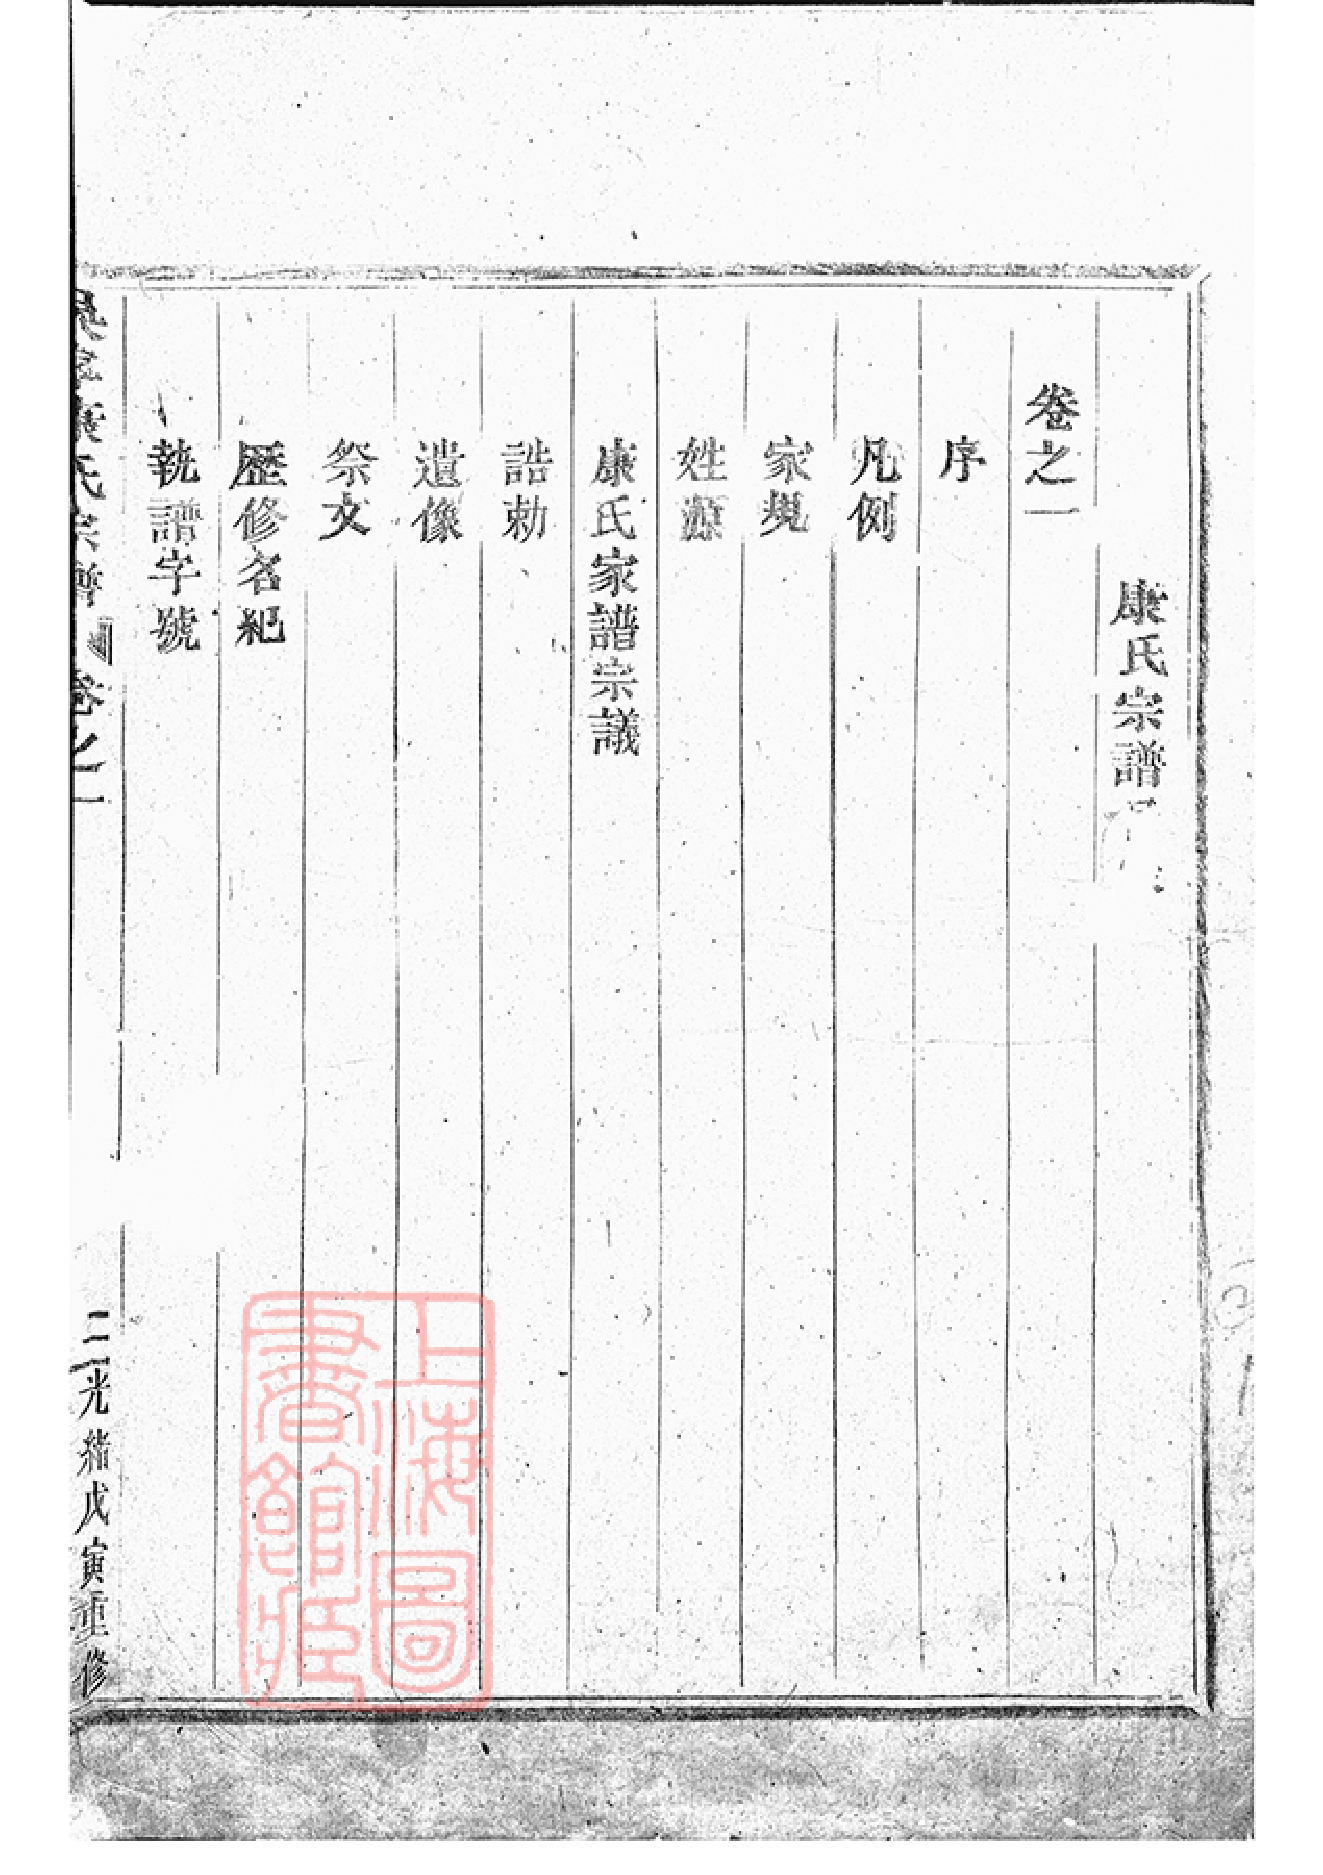 康氏宗譜
卷之一
序
凡例
家規
姓源
康氏家譜宗議
誥勅
遺像
祭文
歷修名紀
執譜字號
康氏宗譜 卷之一
二 光緒戊寅重修
上海圖書館藏